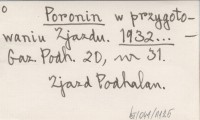 Poronin w przygoto-
waniu Zjazdu. 1932... —
Gaz. Podh. 20, nr 31.
Zjazd Podhalan.